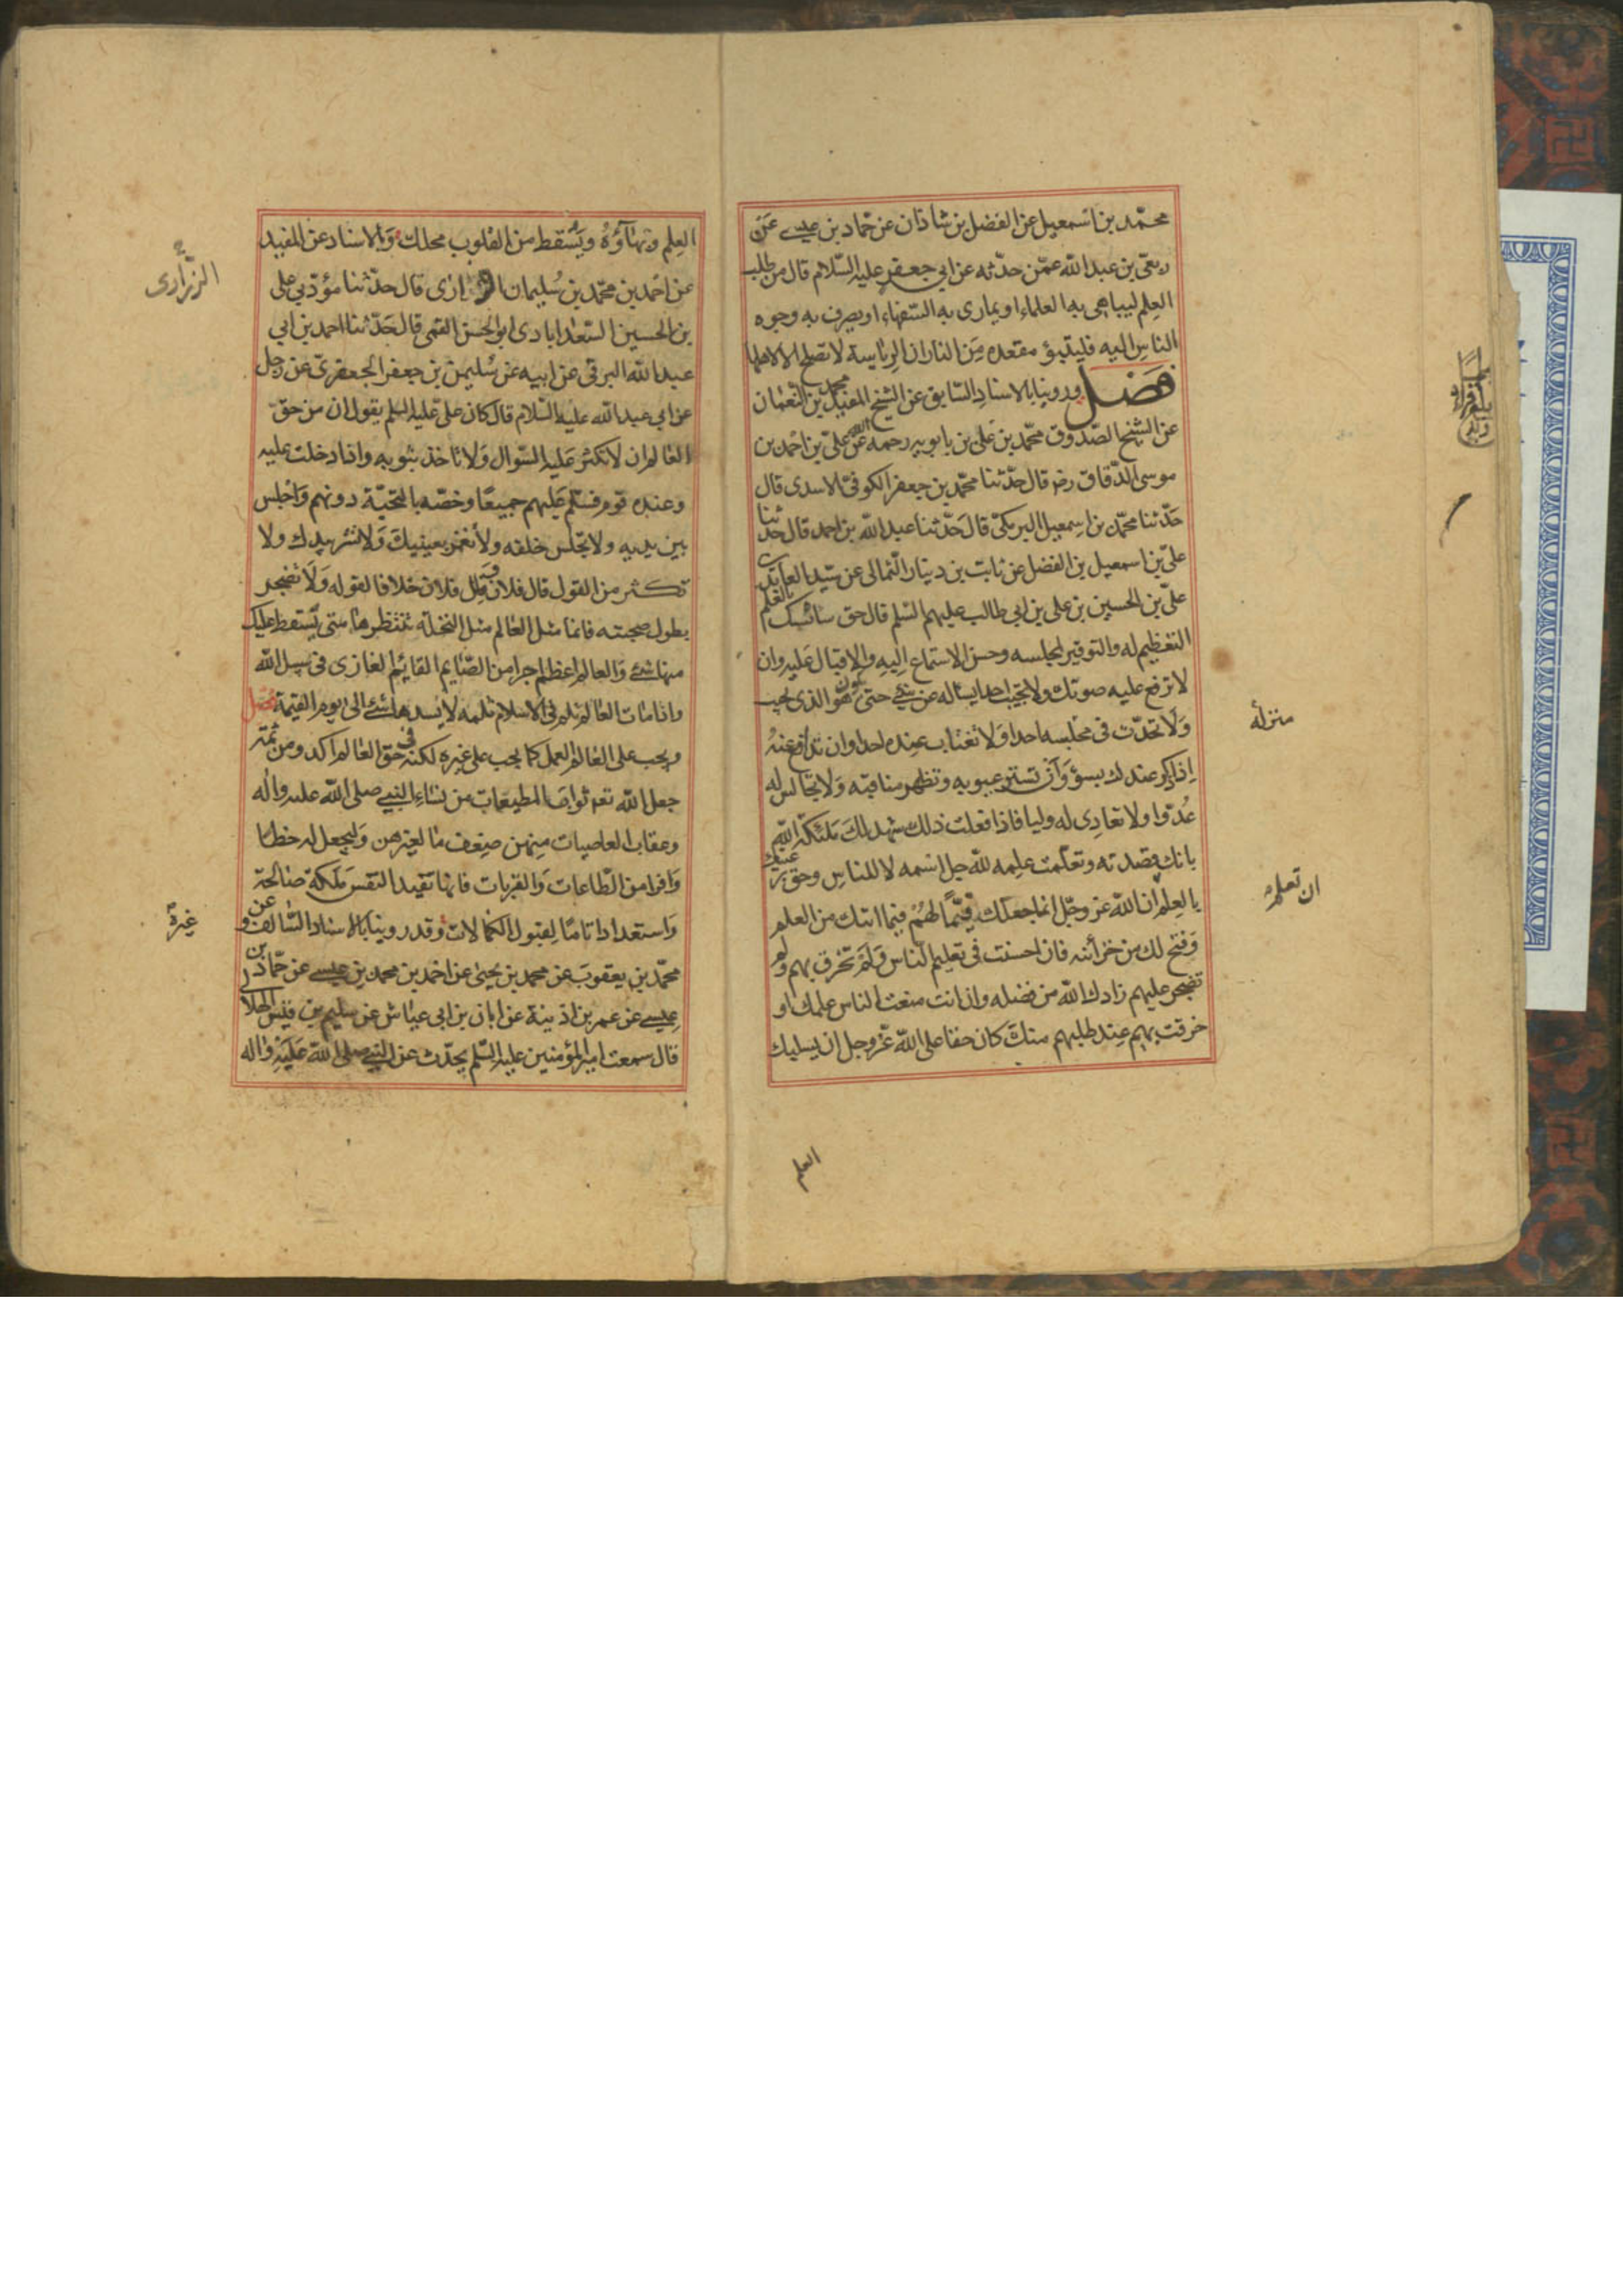 محمّد بن اسمعيل عن الفضل بن شاذان عن حمّاد بن عيسى عَن
ربعى بن عبد الله عمّن حدّثه عن ابى جعفر عليه السّلام قال من طلب
العِلم ليباهى به العلماء او يمارى به السّفهاء او يصرف به وجوه
الناسِ اليه فليتبوّء مقعده مِن النار ان الرّئاسة لا تصلح الا لاهلها
فصَل وروينا بالاسنادِ السّابق عن الشيخ المفيد محمد بن النعمان
عن الشيخ الصّدوق محمّد بن عَلى بن بابويه رحمه الله عن علىّ بن احمد بن
موسى الدّقاق رضه قال حدّثنا محمّد بن جعفر الكوفىّ الاسدى قال
حَدّثنا محمّد بن اسمعيل البرمكىّ قالَ حَدّثنا عبد الله بن احمد قال حدثنا
علىّ بن اسمعيل بن الفضل عن ثابت بن دينار الثمالى عن سيّد العابدين
علىّ بن الحسين بن على بن ابى طالب عليهم السّلم قال حق سائسك بالعلم
التعظيم له والتوقير لمجلسه وحسن الاستماع اِليهِ والاِقبال عَليهِ وان
لا ترفع عليه صوتك ولا تجيب احدا يساله عن شئ حتى يكون هو الذى يجيب
وَلا تحدّث فى مجلسه احدا وَلا تغتاب عِنده احدا وان تدافع عَنهُ
اِذا ذكر عندك بسوء وَاَن تستر عيوبه وتظهر مناقبه وَلا تجالس له
عُدوّا ولا تعادِى له وليا فاذا فعلت ذلك شهد لكَ مَلئكة الله
بانك قصدته وتعلّمت علِمه لله جل اسمه لا للناسِ وحقّ رعيتك
بالعِلم ان الله عز وجلّ انما جعلك قيّمًا لهُم فيما اتيك من العلم
وَفتح لك من خزائنه فان احسنت فى تعليم الناس وَلَم تخرق بهم ولم
تضجر عليهم زادك الله من فضله وان انت منعت الناس علمك او
خرقت بهم عِند طلبهم منكَ كان حقا على الله عزّ وجل ان يسلبك
منزله
ان تعلم
العلم
العِلم وبهاؤهُ ويُسقط من القلوب محلك وَبالاسناد عن المفيد
عن احمد بن محمّد بن سُليمان الزرارى قال حدّثنا مؤدّبى على
بن الحسين السّعدابادى ابو الحسن القمى قال حَدّثنا احمد بن ابى
عبد الله البرقى عن ابيه عن سُليمن بن جعفر الجعفرىّ عن رجل
عن ابى عبد الله عليه السّلام قال كان علىّ عليه السّلم يقول ان من حقّ
العالم ان لا تكثر عَليه السّوال وَلا تاخذ بثوبه واذا دخلت عليه
وعنده قوم فسلّم عَليهم جميعًا وخصّه بالتحيّة دونهم وَاجلس
بين يديه ولا تجلس خلفه ولا تغمز بعينيكَ وَلا تشر بيدك ولا
تكثر من القول قال فلان وقال فلان خلافا لقوله وَلا تضجر
بطول صحبته فانما مثل العالم مثل النخلة تنتظرها متى يَسقط عليك
منها شئ والعالم اعظم اجرا من الصّايم القائم الغازى فى سبيل الله
واذا مات العالم ثلم فى الاسلام ثلمه لا يسدها شئ الى يوم القيمة فصَل
ويجب على العالم العمل كما يجب على غيره لكنه فى حق العالم اكد ومن ثمّة
جعل الله تعه ثواب المطيعات من نساء النبي صلى الله عليه واله
وعقاب العاصيات مِنهن ضِعف ما لغيرهن وَليجعل له حظا
وَافرا من الطّاعات وَالقربات فانها تفيد النفسَ مَلكة صالحة
وَاستعدادا تامّا لقبول الكمالات وقد روينا بالاسناد السّالف عن و
محمّد بن يعقوبَ عن محمد بن يحيى عن احمد بن محمد بن عيسى عن حمّاد بن
عيسى عن عمر بن اذينة عن ابان بن ابى عياش عن سليم بن قيس الهلالى
قال سمعت امير المؤمنين عليه السّلم يحدّث عن النبي صلى الله عَليه واله
الزّرارى
غيرة